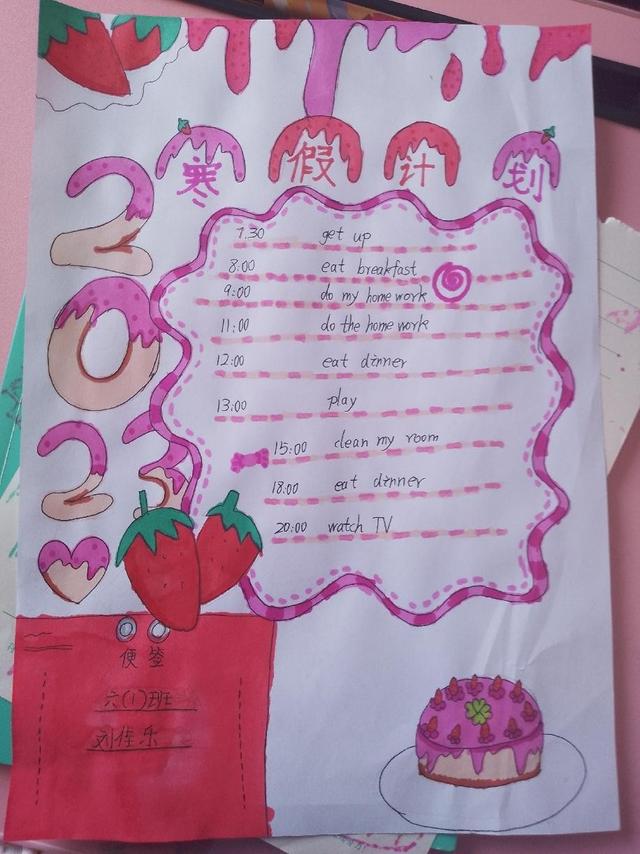 寒假计划
2023
7.30 get up
8:00 eat breakfast
9:00 do my home work
11:00 do the home work
12:00 eat dinner
13:00 play
15:00 clean my room
18:00 eat dinner
20:00 watch TV
便签
六(1)班
刘佳乐